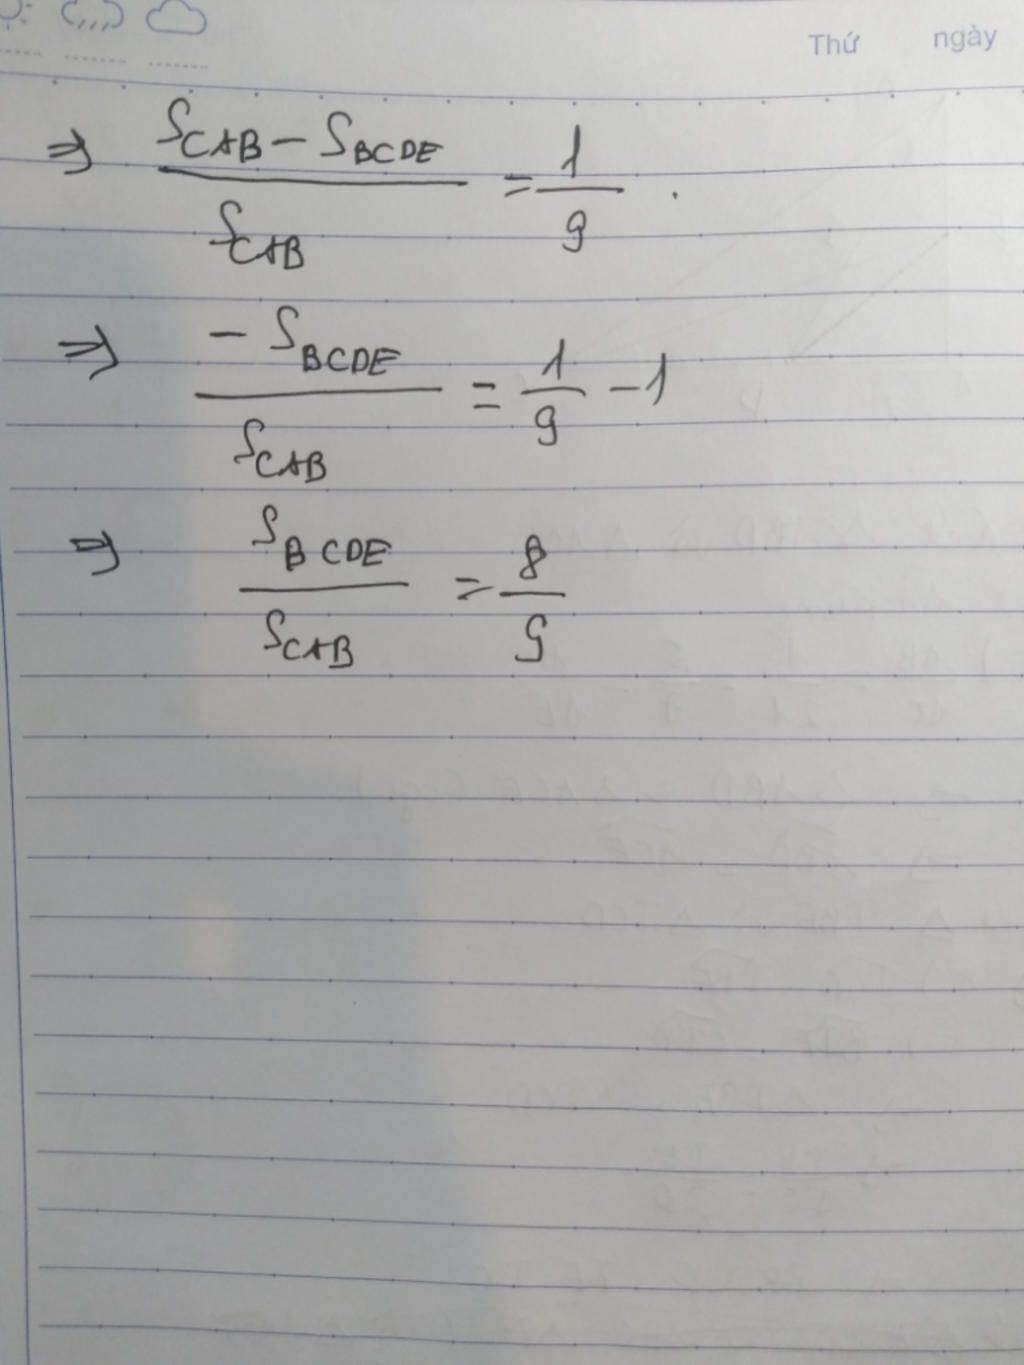 Thứ ngày
⇒ (S_CAB − S_BCDE) / S_CAB = 1/9 .
⇒ −S_BCDE / S_CAB = 1/9 − 1
⇒ S_BCDE / S_CAB = 8/9